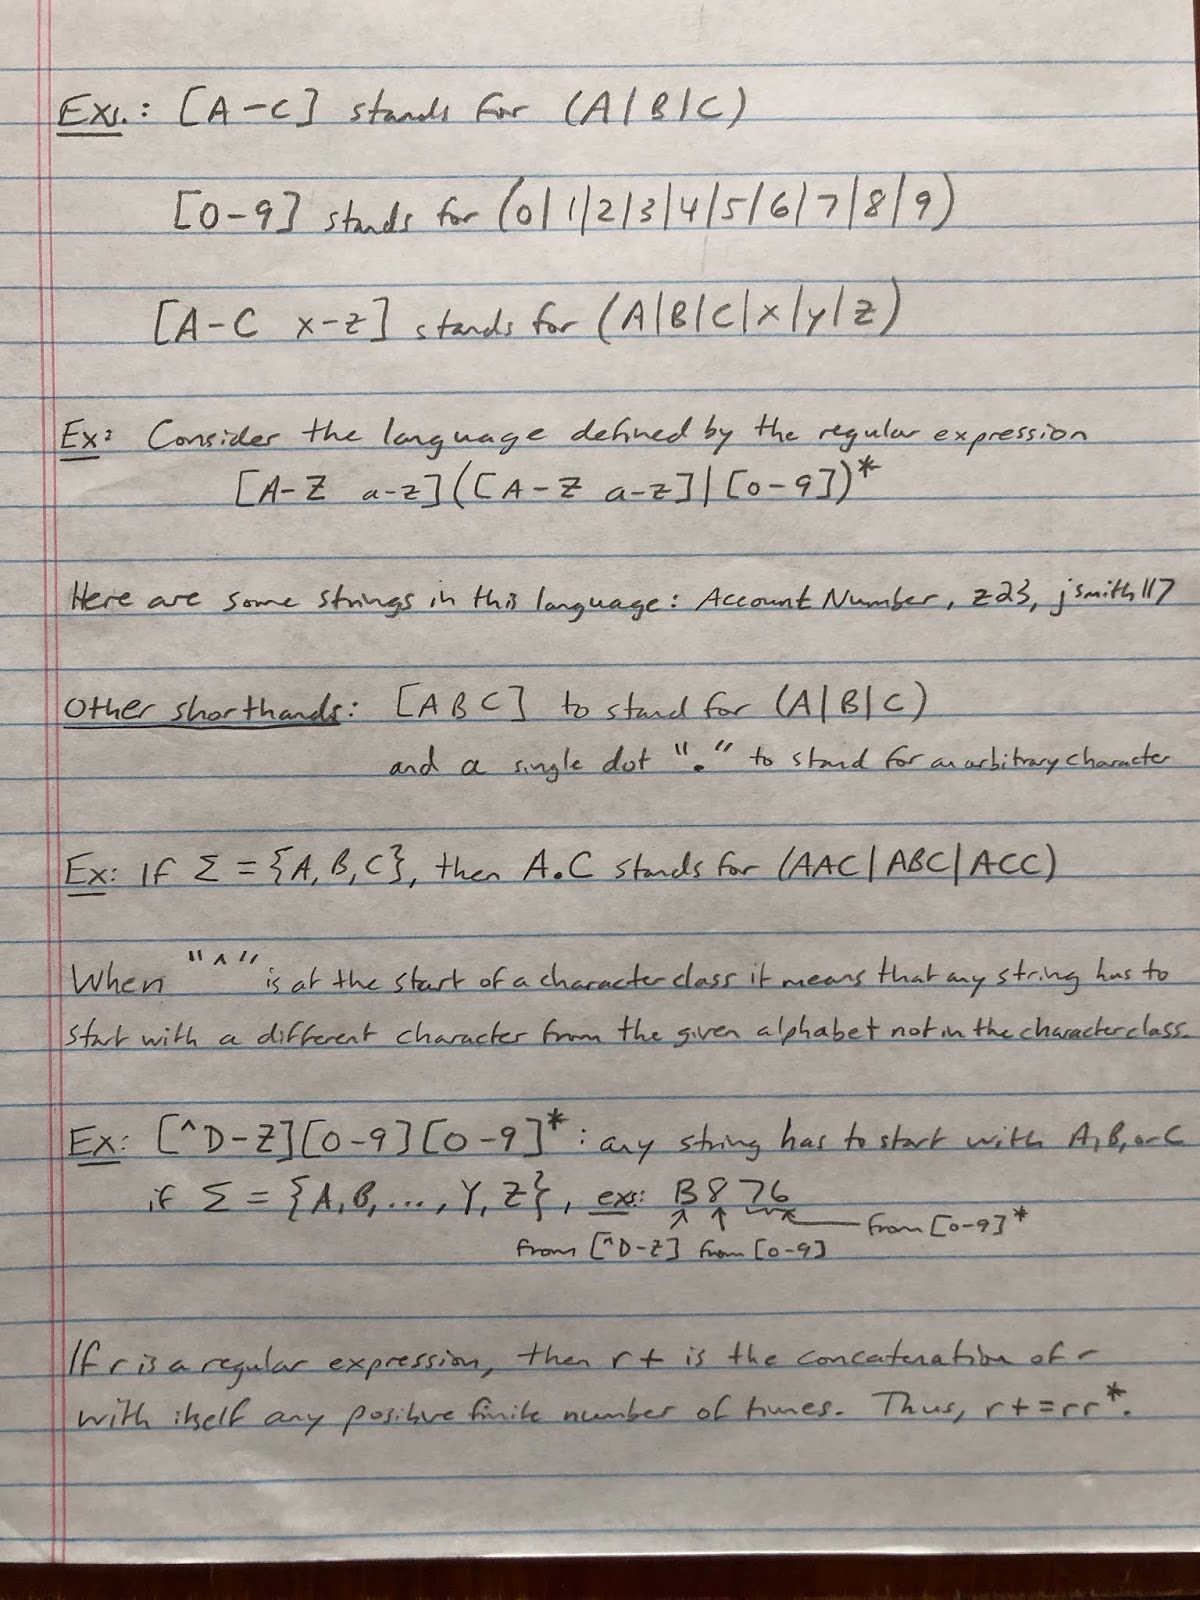 Exs.: [A-C] stands for (A|B|C)
[0-9] stands for (0|1|2|3|4|5|6|7|8|9)
[A-C x-z] stands for (A|B|C|x|y|z)
Ex: Consider the language defined by the regular expression
[A-Z a-z]([A-Z a-z]|[0-9])*
Here are some strings in this language: Account Number, z23, jsmith117
Other shorthands: [A B C] to stand for (A|B|C)
and a single dot "." to stand for an arbitrary character
Ex: If Σ = {A, B, C}, then A.C stands for (AAC|ABC|ACC)
When "^" is at the start of a character class it means that any string has to
start with a different character from the given alphabet not in the character class.
Ex: [^D-Z][0-9][0-9]*: any string has to start with A, B, or C
if Σ = {A, B, ..., Y, Z}, exs: B876
from [^D-Z] from [0-9] from [0-9]*
If r is a regular expression, then r+ is the concatenation of r
with itself any positive finite number of times. Thus, r+=rr*.